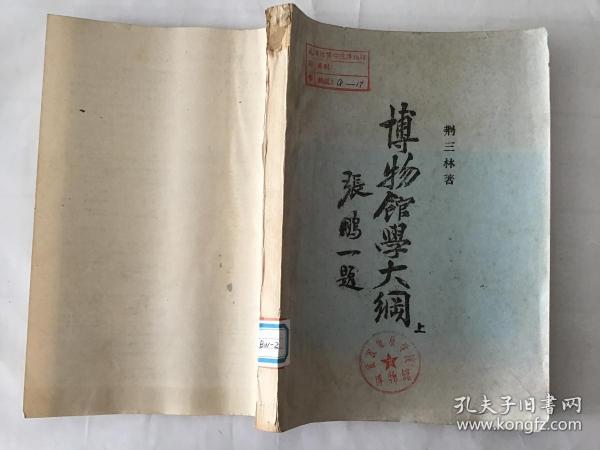 荆三林著
博物館學大綱
上
張鵬一題
a—17
BW-2
孔夫子旧书网
www.kongfz.com